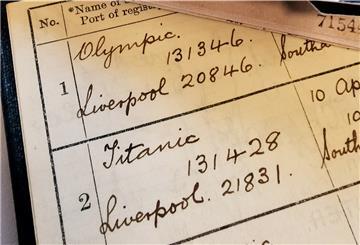 No.
*Name of
Port of regist
7154
1
Olympic.
131346.
Liverpool 20846.
South
2
Titanic
131428
Liverpool. 21831.
10 Ap
10
South